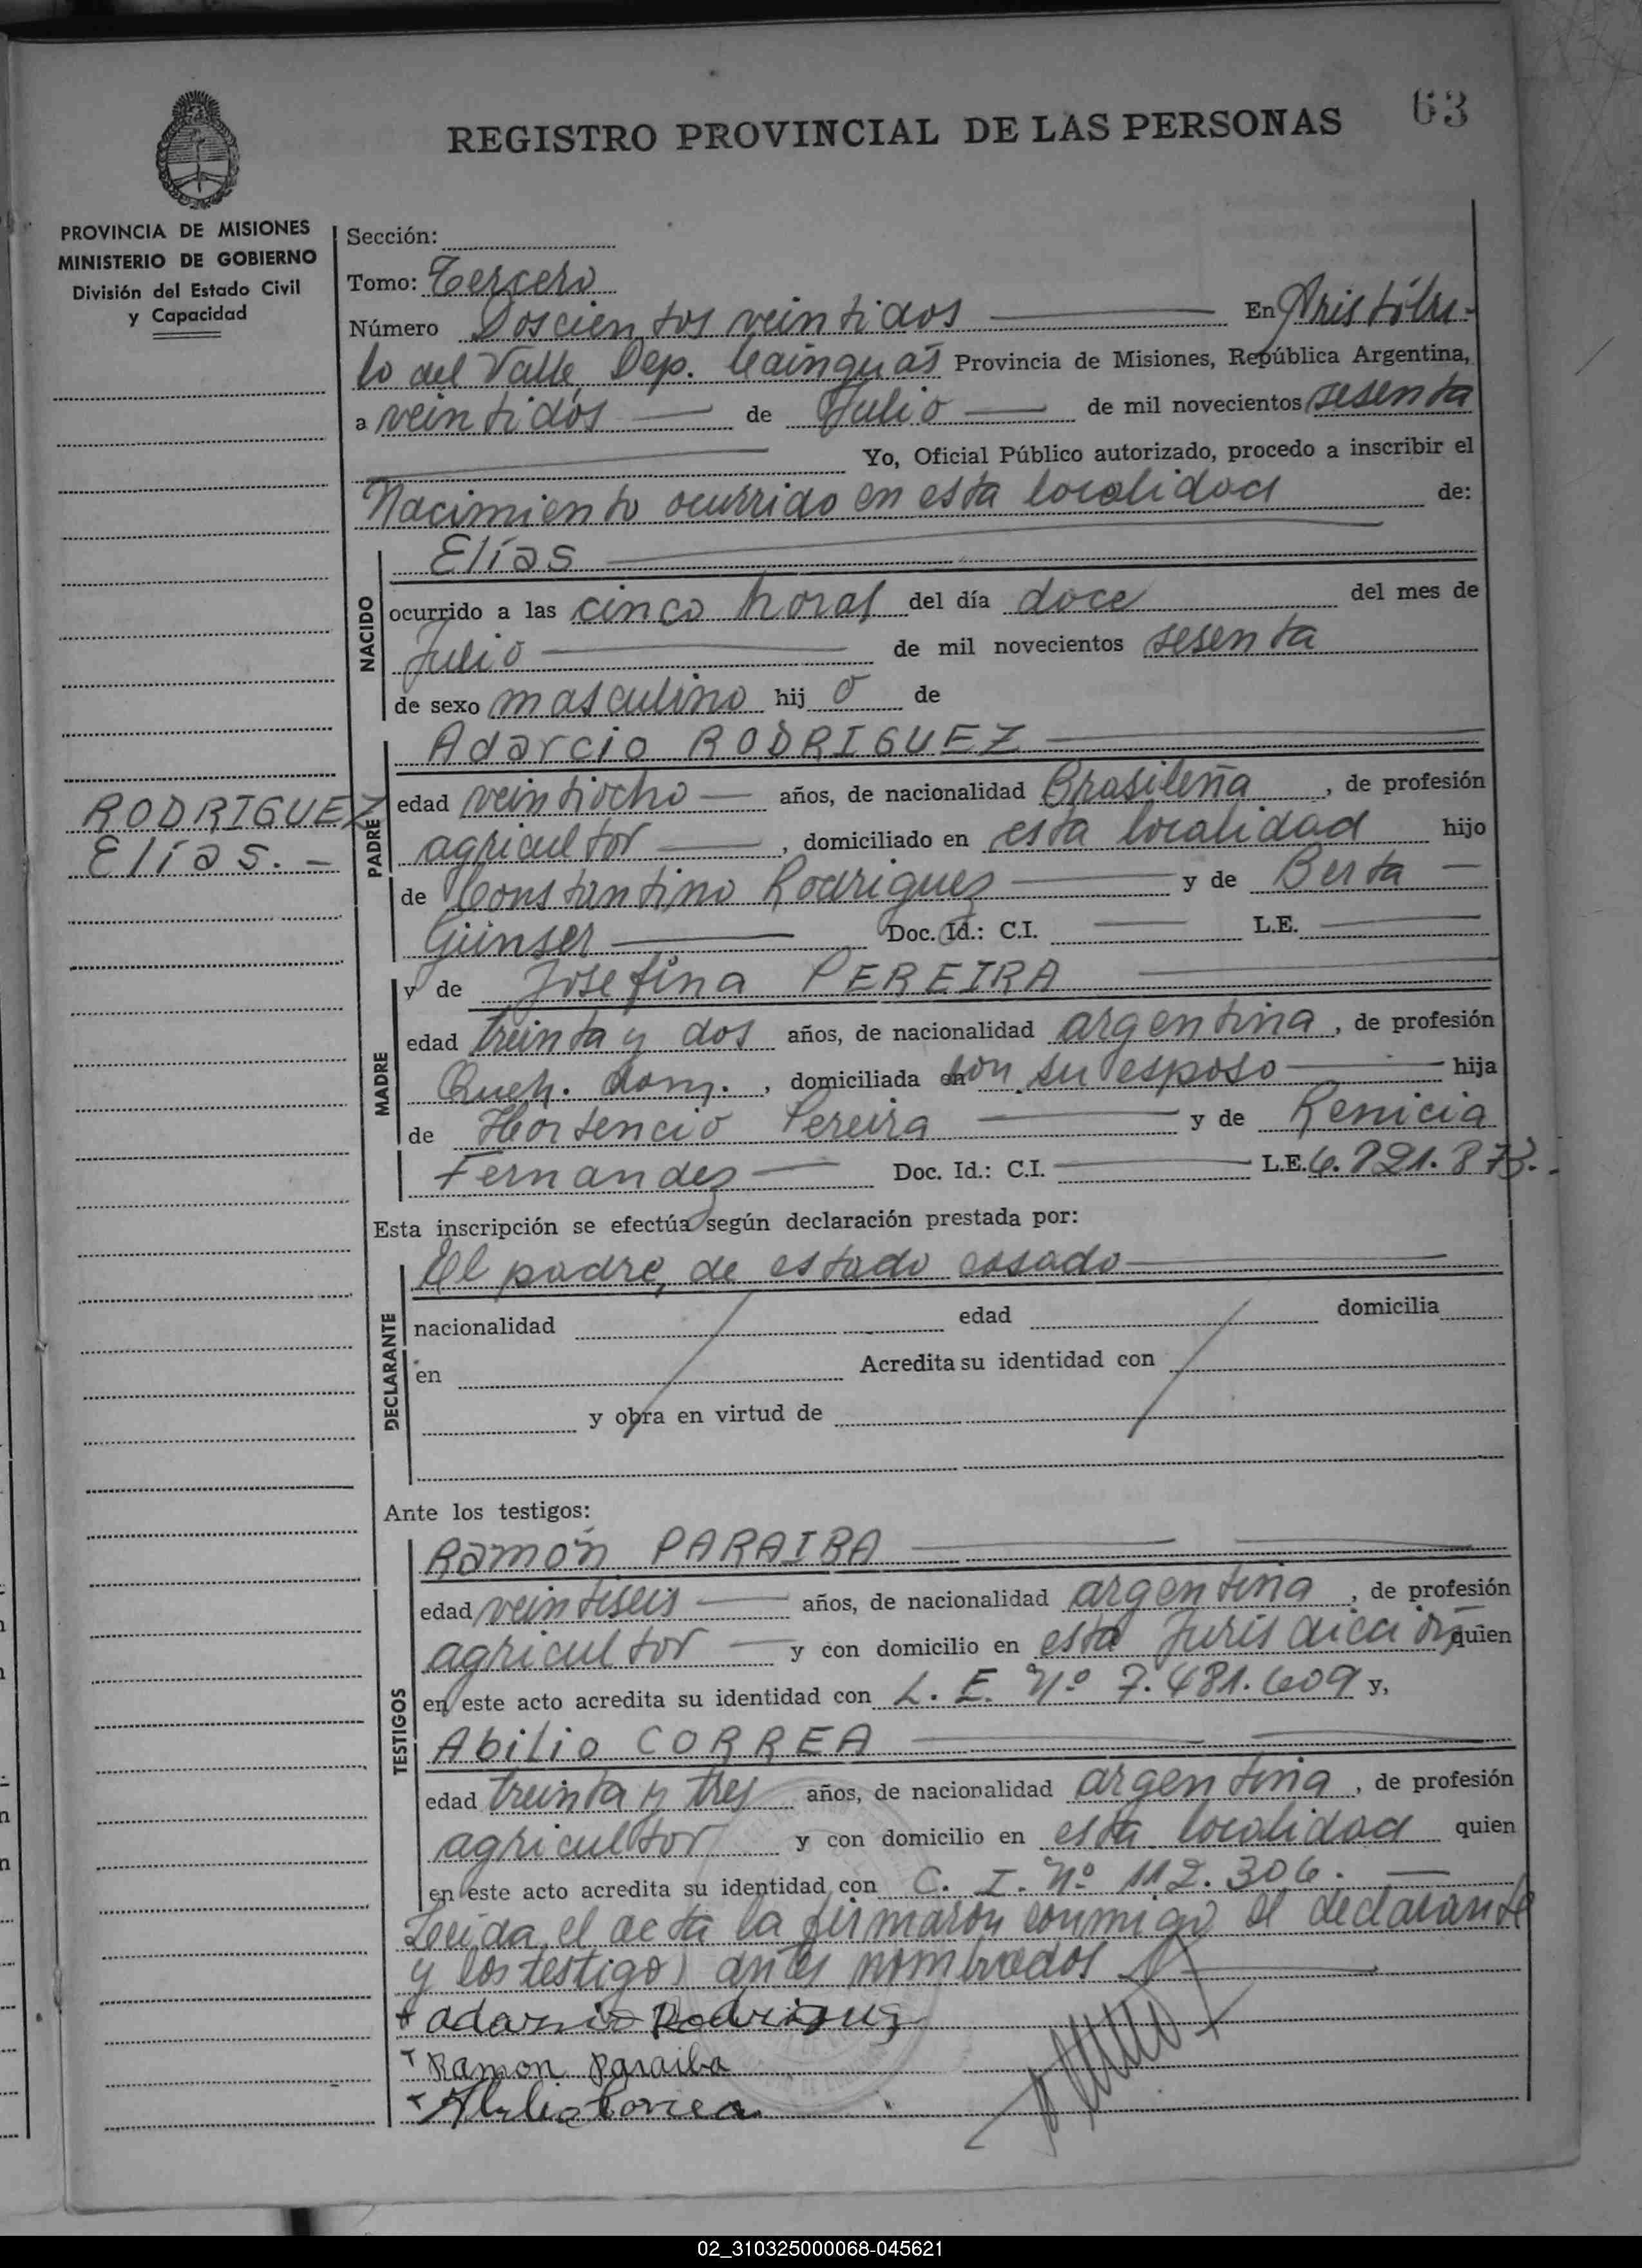 63
REGISTRO PROVINCIAL DE LAS PERSONAS
PROVINCIA DE MISIONES
MINISTERIO DE GOBIERNO
División del Estado Civil
y Capacidad
RODRIGUEZ
Elías. -
Sección:
Tomo: Tercero
Número Doscientos veintidos En Aristóbu-
lo del Valle, Dep. Cainguás Provincia de Misiones, República Argentina,
a veintidós de Julio de mil novecientos sesenta
Yo, Oficial Público autorizado, procedo a inscribir el
Nacimiento ocurrido en esta localidad de:
NACIDO
Elías
ocurrido a las cinco horas del día doce del mes de
Julio de mil novecientos sesenta
de sexo masculino hij o de
PADRE
Adarcio RODRIGUEZ
edad veintiocho años, de nacionalidad Brasileña, de profesión
agricultor, domiciliado en esta localidad hijo
de Constantino Rodriguez y de Berta
Günser Doc. Id.: C.I. L.E.
MADRE
y de Josefina PEREIRA
edad treinta y dos años, de nacionalidad argentina, de profesión
Queh. dom., domiciliada en con su esposo hija
de Hortencio Pereira y de Renicia
Fernandez Doc. Id.: C.I. L.E.
Esta inscripción se efectúa según declaración prestada por:
DECLARANTE
El padre, de estado casado
nacionalidad edad domicilia
en Acredita su identidad con
y obra en virtud de
Ante los testigos:
TESTIGOS
Ramón PARAIBA
edad veintiseis años, de nacionalidad argentina, de profesión
agricultor y con domicilio en esta Jurisdicción, quien
en este acto acredita su identidad con L. E. Nº 7.481.609 y,
Abilio CORREA
edad treinta y tres años, de nacionalidad argentina, de profesión
agricultor y con domicilio en esta localidad quien
en este acto acredita su identidad con C. I. Nº 112.306.
Leída el acta la firmaron conmigo el declarante
y los testigos antes nombrados
+ adarcio Rodriguez
+ Ramon Paraiba
+ Abilio Correa
02_310325000068-045621